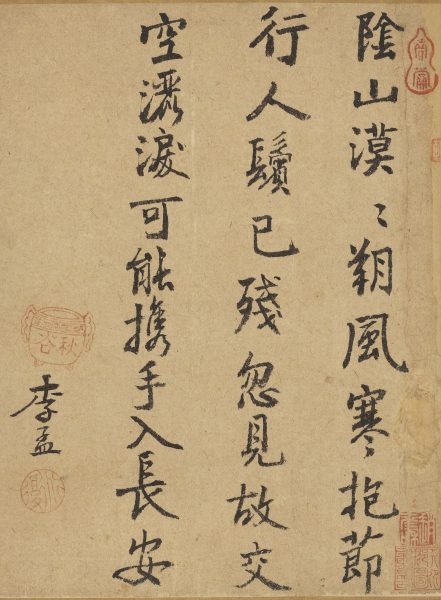 陰山漠〻朔風寒抱節
行人鬢已殘忽見故交
空灑淚可能攜手入長安
秋谷
李孟